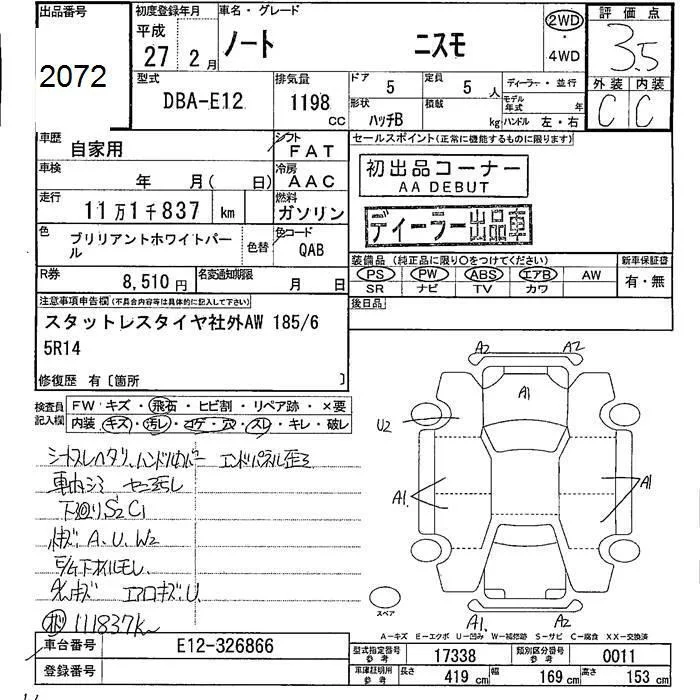 出品番号
2072
初度登録年月
平成
27年2月
車名・グレード
ノート ニスモ
2WD
・
4WD
評価点
3.5
外装 内装
C C
型式
DBA-E12
排気量
1198
cc
ドア
5
定員
5人
形状
ハッチB
積載
kg
ディーラー・並行
モデル年式 年
ハンドル 左・右
車歴
自家用
シフト
FAT
車検
年 月( 日)
冷房
AAC
走行
11万1千837 km
燃料
ガソリン
色
ブリリアントホワイトパール
色替
色コード
QAB
R券
8,510円
名変通知期限
月 日
セールスポイント(正常に機能するものに限ります)
初出品コーナー
AA DEBUT
ディーラー出品車
装備品(純正品に限り○をつけてください)
PS PW ABS エアB AW
SR ナビ TV カワ
新車保証書
有・無
後日品
注意事項申告欄(不具合内容等は具体的に記入して下さい)
スタットレスタイヤ社外AW 185/6
5R14
修復歴 有〔箇所 〕
検査員
記入欄
FW キズ・飛石・ヒビ割・リペア跡・×要
内装・キズ・汚レ・コゲ・穴・スレ・キレ・破レ
シートスレヘタリ、ハンドルカバー
車内シミ
下廻りS2C1
キズ A、U、W2
エアロキズU
111837K
A2 A2
A1
U2
A1.
A1
A1. A2
スペア
A-キズ E-エクボ U-凹み W-補修跡 S-サビ C-腐食 XX-交換済
車台番号
E12-326866
登録番号
型式指定番号
参考
17338
類別区分番号
参考
0011
車庫証明用
参考
長さ
419 cm
幅
169 cm
高さ
153 cm